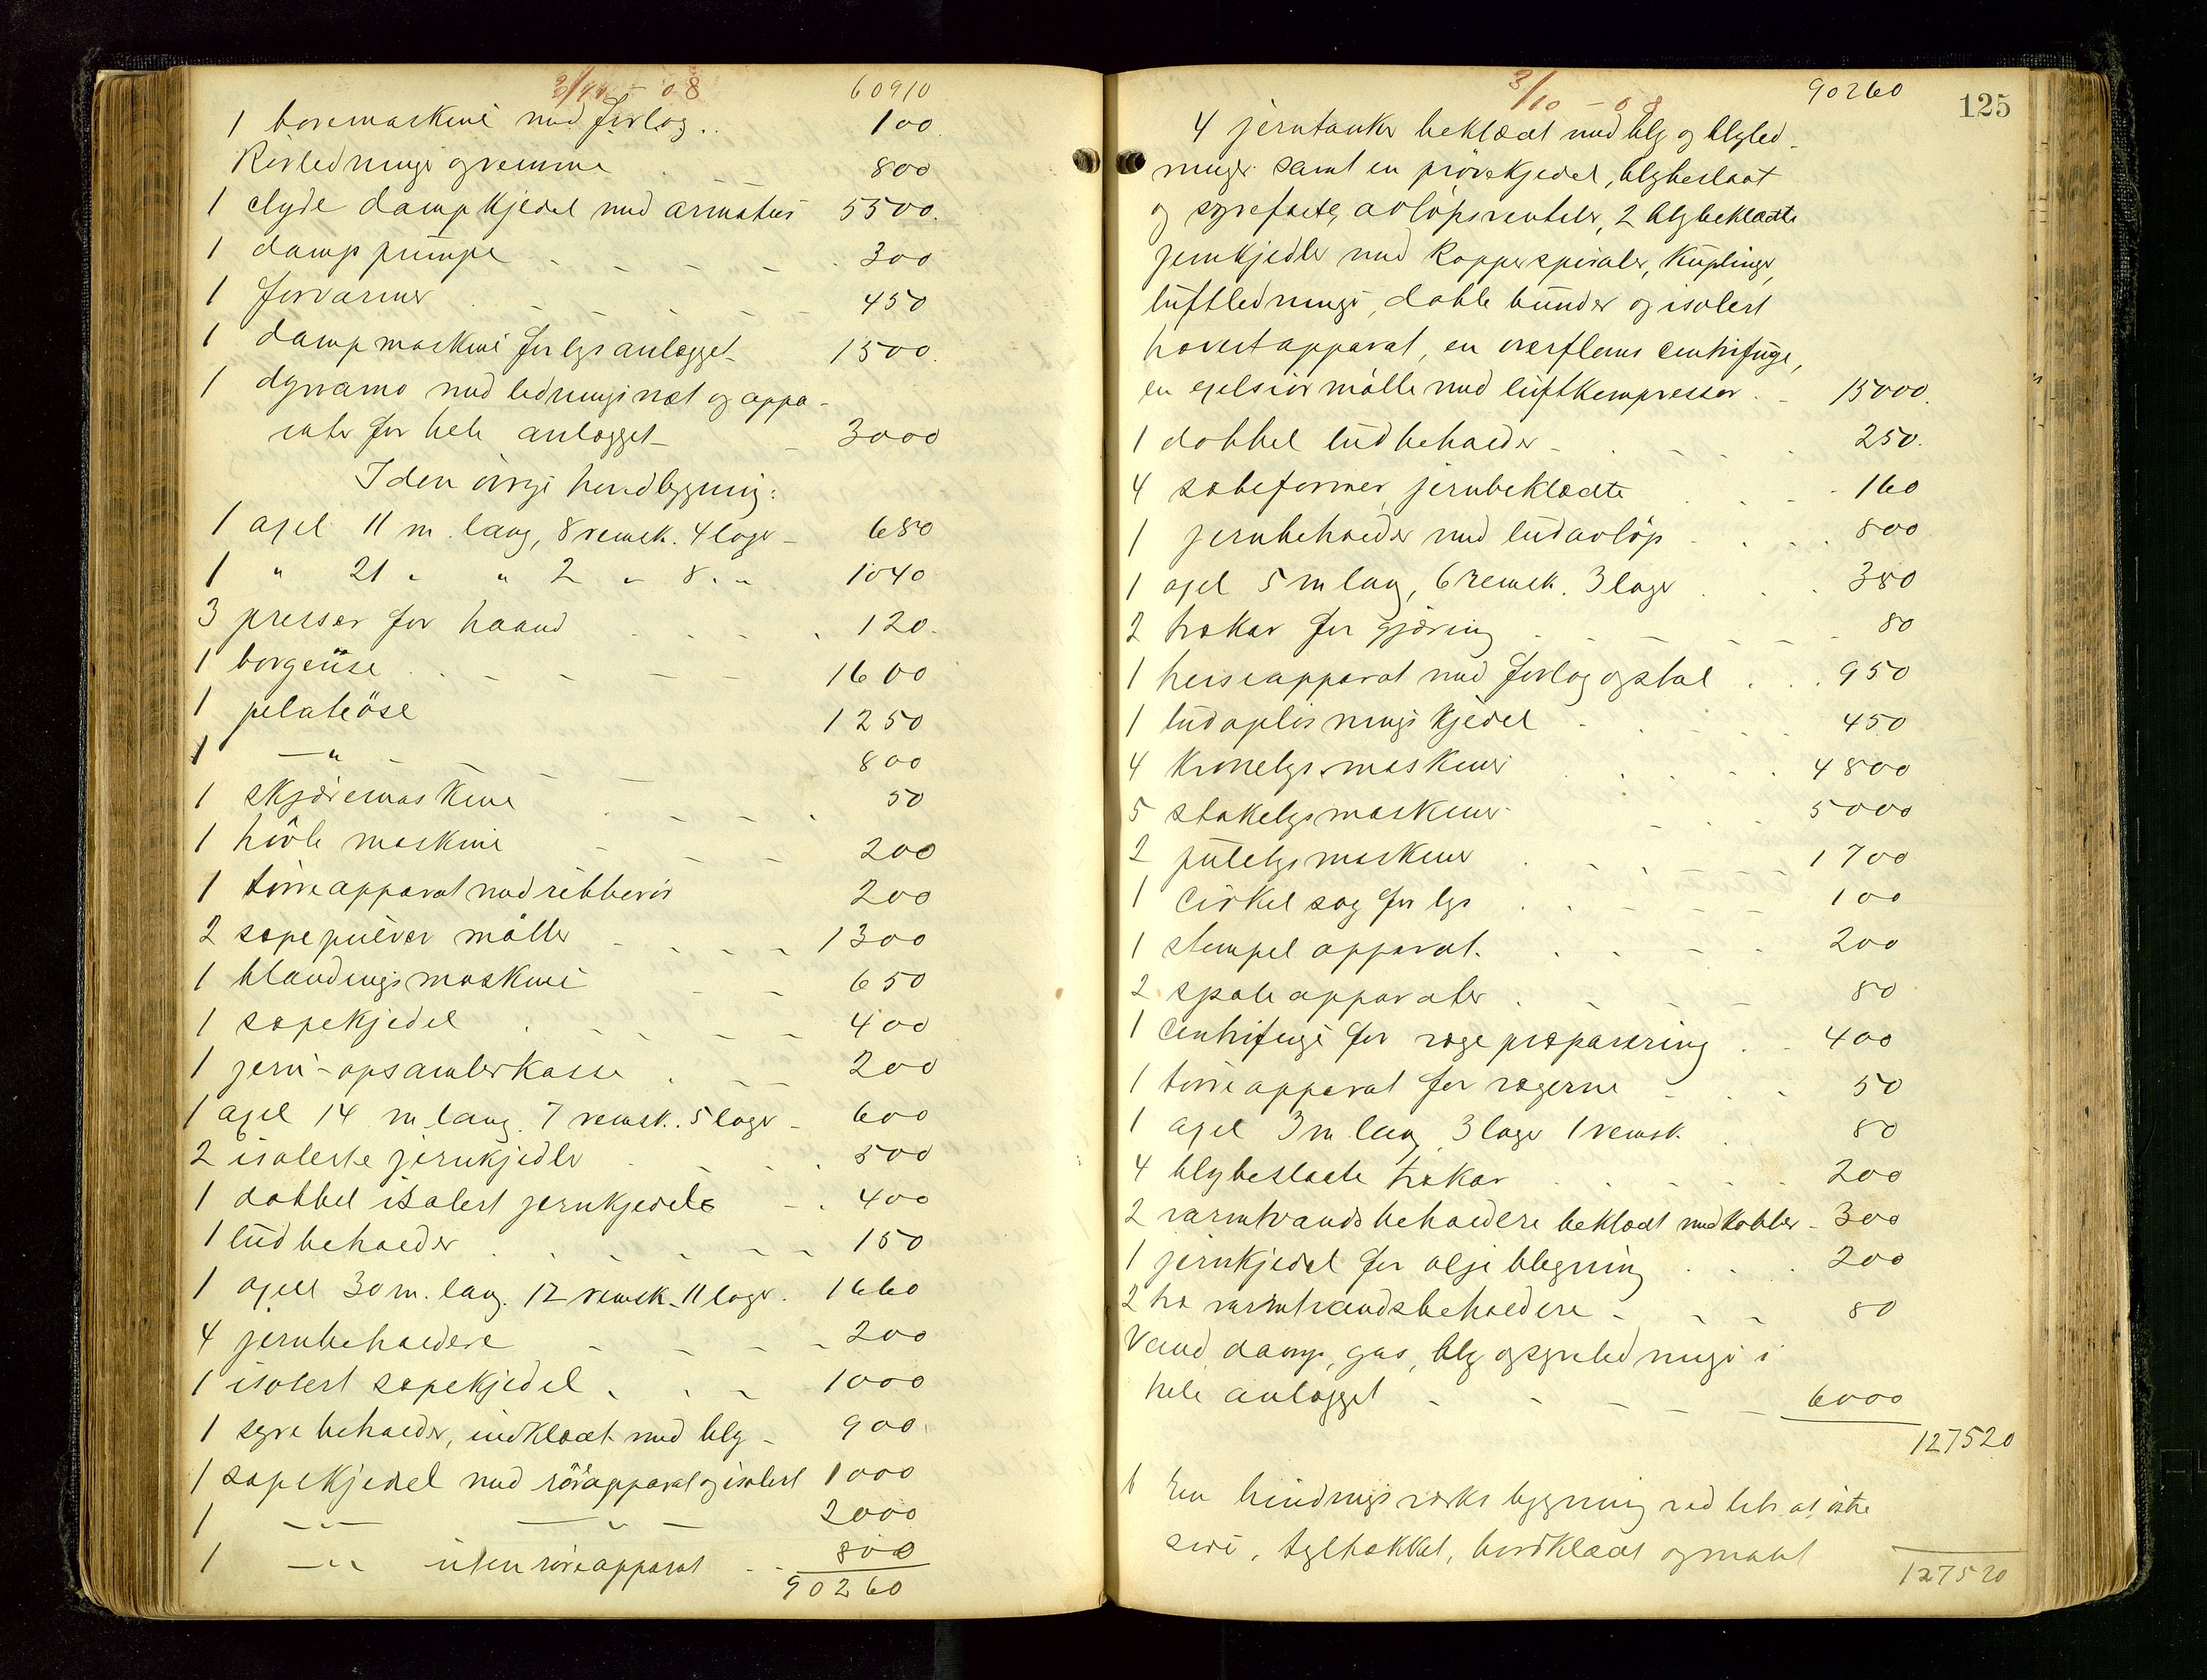 3/10 - 08 60910
1 boremaskine med forlag.. 100
Rörledninger og remme 800
1 clyde dampkjedel med armatur 5500.
1 damppumpe 300
1 forvarmer 450
1 dampmaskine for lysanlægget 1500.
1 dynamo med ledningsnæt og appa-
rater for hele anlægget 3000
I den övrige hovedbygning:
1 axel 11 m. lang, 8 remsk. 4 lager 680
1 " 21 " " 2 " 8 " " 1040
3 presser for haand 120.
1 borgeuse 1600
1 pelateöse 1250
1 —"— 800
1 skjæremaskine 50
1 hövlemaskine 200
1 törreapparat med ribberör 200
2 sæpepulver möller 1300
1 blandingsmaskine 650
1 sæpekjedel 400
1 jern-opsamlerkasse 200
1 axel 14 m. lang. 7 remsk. 5 lager 600
2 isolerte jernkjedler 500
1 dobbel isolert jernkjedel 400
1 ludbeholder 150
1 axel 30 m. lang. 12 remsk. 11 lager. 1660
4 jernbeholdere 200
1 isolert sæpekjedel 1000
1 syrebeholder, indklædt med bly 900.
1 sæpekjedel med röreapparat og isolert 1000
1 —"— —"— 2000
1 —"— uten röreapparat 800
90260
3/10 - 08 90260 125
4 jerntanker beklædt med bly og blyled-
ninger samt en prövekjedel, blybeslaat
og syrefaste avlöpsventiler, 2 blybeklædte
jernkjedler med kopperspiraler, kuplinger,
luftledninger, doble bunder og isolert
apparat, en centrifuge,
en mölle med luftkompressor 15000.
1 dobbel ludbeholder 250.
4 sæbeformer jernbeklædte 160
1 jernbeholder med ludavlöp 800
1 axel 5 m lang, 6 remsk. 3 lager 380
2 trækar for gjæring 80
1 heiseapparat med forlag og stol 950
1 ludoplösningskjedel 450
4 kronelysmaskiner 4800
5 stakelysmaskiner 5000
2 julelysmaskiner 1700
1 cirkelsag for lys 100
1 stempelapparat. 200
2 spoleapparater 80
1 centrifuge for vægepræparering 400
1 törreapparat for vægerne 50
1 axel 3 m. lang 3 lager 1 remsk. 80
4 blybeslaate trækar 200
2 varmtvandsbeholdere beklædt med kobber 300
1 jernkjedel for oljeblegning 200
2 træ varmtvandsbeholdere 80
Vand, damp, gas, bly og syreledninger i
hele anlægget 6000
127520
b En bindingsverks bygning ved litr. a's östre
side, tegltækket, bordklædt og malt
127520